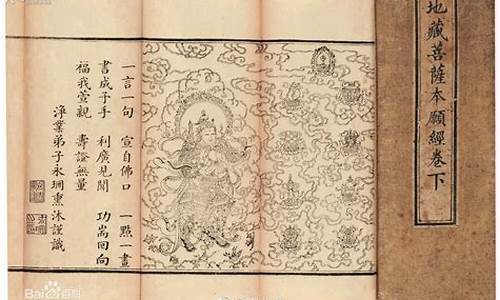 地藏菩薩本願經卷下
一言一句 宣自佛口 一點一畫
書成予手 利廣見聞 功嵩回向
福我萱親 壽證無量
淨業弟子永熏沐謹識
Bai百科